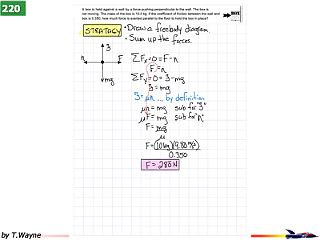 220
A box is held against a wall by a force pushing perpendicular to the wall. The box is
not moving. The mass of the box is 10.0 kg. If the coefficient of friction between the wall and
box is 0.350, how much force is exerted parallel to the floor to hold the box in place?
STRATAGY • Draw a freebody diagram.
• Sum up the forces.
n F
mg
ΣFx=0=F-n
F=n
ΣFy=0=ℑ-mg
ℑ=mg
ℑ=μn ... by definition
μn=mg sub for "ℑ"
μF=mg sub for "n"
F=mg
μ
F=(10kg)(9.80m/s²)
0.350
F=280N
by T.Wayne